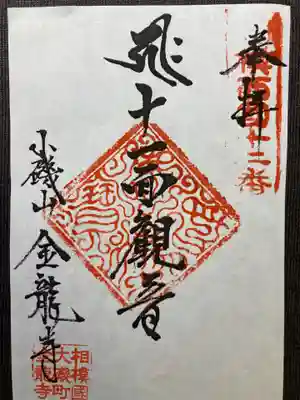 奉拝
十二番
十一面觀音
小磯山
金龍寺
相模國
大磯町
金龍寺